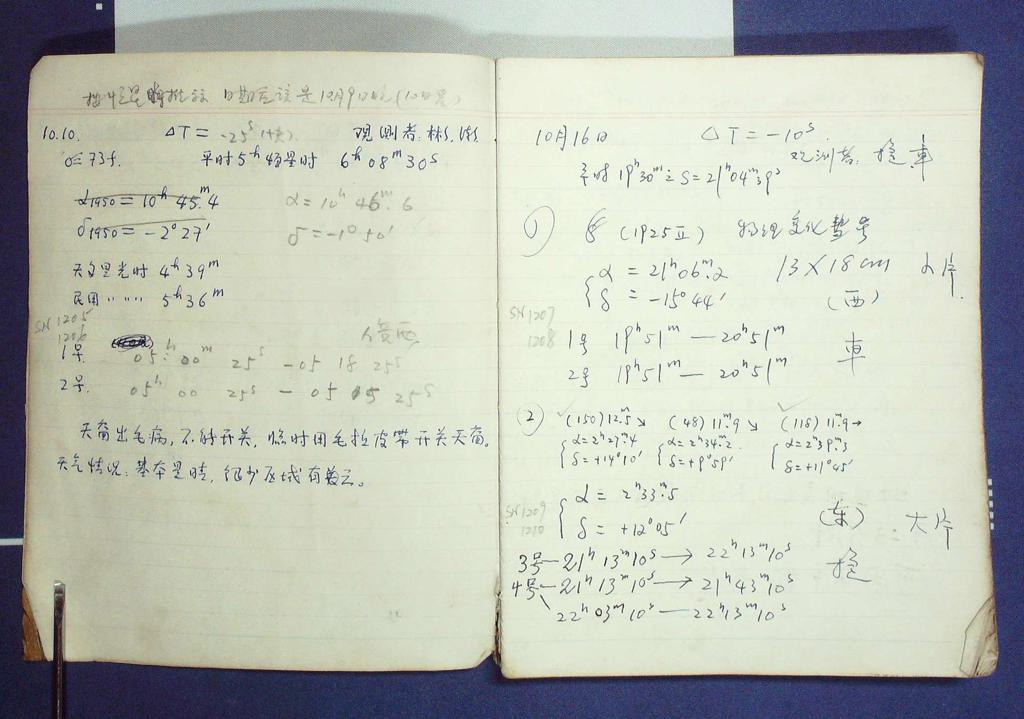 日期应该是12月9日晚(10日晨)
10.10. ΔT = -25ˢ 观测者: 林
平时 5ʰ 恒星时 6ʰ 08ᵐ 30ˢ
α1950 = 10ʰ 45ᵐ.4 α = 10ʰ 46ᵐ.6
δ1950 = -2° 27′ δ = -1° 50′
天文晨光时 4ʰ 39ᵐ
民用 〃 〃 〃 5ʰ 36ᵐ
SN 1205
1206
1号. 05ʰ 00ᵐ 25ˢ - 05 18 25ˢ
2号. 05ʰ 00 25ˢ - 05 05 25ˢ
天窗出毛病, 不能开关, 临时用毛拉皮带开关天窗。
天气情况: 基本是晴, 很少区域有散云。
10月16日 ΔT = -10ˢ
观测者:
平时 19ʰ30ᵐ S = 21ʰ04ᵐ39ˢ
① (1925 II)
α = 21ʰ06ᵐ.2 13 × 18 cm
δ = -15° 44′ (西)
SN 1207
1208
1号 19ʰ 51ᵐ — 20ʰ 51ᵐ 車
2号 19ʰ 51ᵐ — 20ʰ 51ᵐ
② (150) 12ᵐ.5 ↘ (48) 11ᵐ.9 ↘ (118) 11ᵐ.9 →
α = 2ʰ27ᵐ.4 α = 2ʰ34ᵐ.2 α = 2ʰ39ᵐ.3
δ = +14°10′ δ = +9°59′ δ = +11°45′
SN 1209
1210
α = 2ʰ33ᵐ.5
δ = +12°05′ (东) 大片
3号 — 21ʰ 13ᵐ 10ˢ → 22ʰ 13ᵐ 10ˢ
4号 — 21ʰ 13ᵐ 10ˢ → 21ʰ 43ᵐ 10ˢ
22ʰ 03ᵐ 10ˢ — 22ʰ 13ᵐ 10ˢ